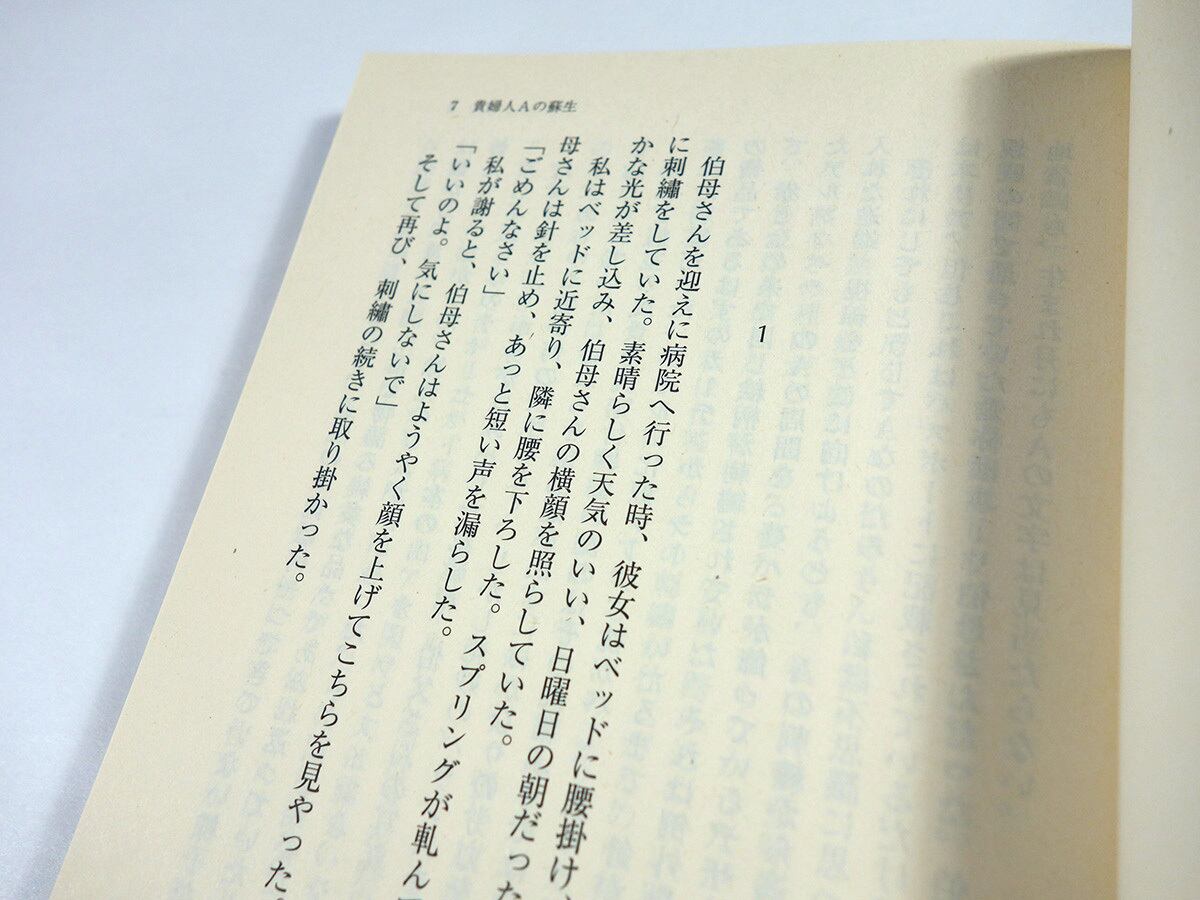 7 貴婦人Aの蘇生
1
伯母さんを迎えに病院へ行った時、彼女はベッドに腰掛け、
に刺繡をしていた。素晴らしく天気のいい、日曜日の朝だった
かな光が差し込み、伯母さんの横顔を照らしていた。
私はベッドに近寄り、隣に腰を下ろした。スプリングが軋ん
母さんは針を止め、あっと短い声を漏らした。
「ごめんなさい」
私が謝ると、伯母さんはようやく顔を上げてこちらを見やった
「いいのよ。気にしないで」
そして再び、刺繡の続きに取り掛かった。